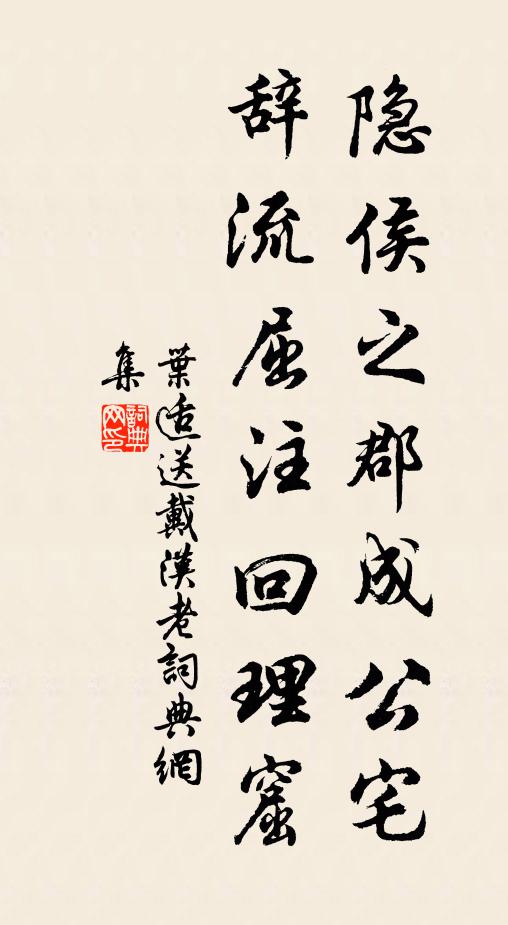 隐侯之郡成公宅
辞流屈注回理窟
葉適送戴漢老詞典網
集
詞典网印